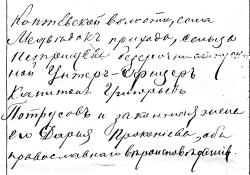 Коптевской волости, села
прихода, сельца
Петрищева безсрочноотпуск-
ной Унтер-Офицер
Капитон Григорьев
Потрусов и законная жена
его Дария Прокопиева, оба
православнаго вероисповедания